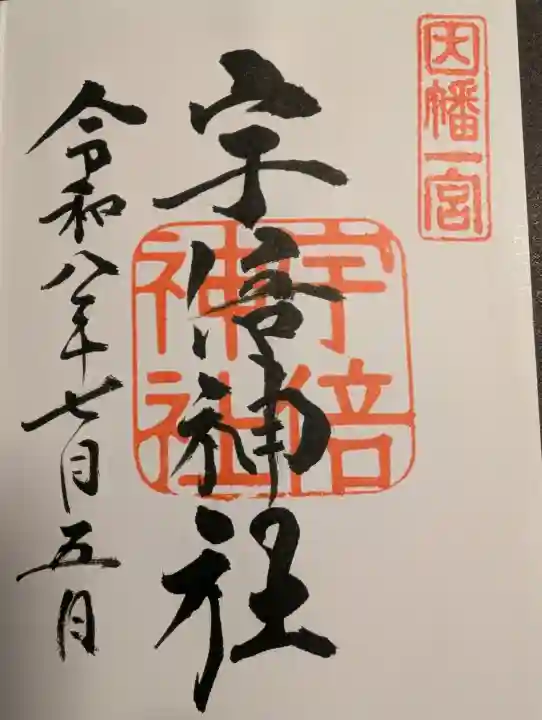 因幡一宮
宇倍神社
宇倍
神社
令和八年七月五日